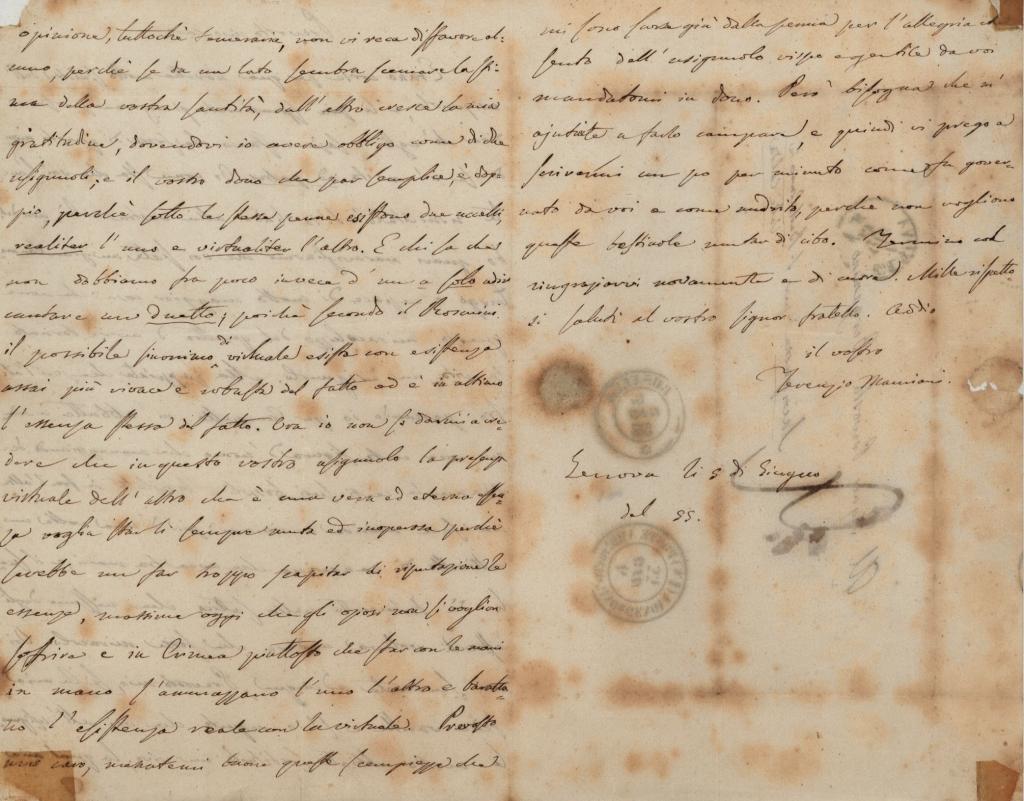 opinione, tuttochè temeraria, non vi reca disfavore al-
cuno, perchè se da un lato sembra scemare la sti-
ma della vostra santità, dall'altro cresce la mia
gratitudine, dovendovi io avere obbligo come di due
usignuoli; e il vostro dono che par semplice, è dop-
pio, perchè sotto le stesse penne esistono due uccelli,
realiter l'uno e virtualiter l'altro. E chi sa che
non dobbiamo fra poco invece d'un a solo udir
cantare un duetto; poichè secondo il Rosmini
il possibile sinonimo di virtuale esiste con esistenza
assai più vivace e robusta del fatto ed è in ultimo
l'essenza stessa del fatto. Ora io non so darmi a cre-
dere che in questo vostro usignuolo la presenza
virtuale dell'altro che è una vera ed eterna essen-
za voglia star lì sempre muta ed inoperosa perchè
sarebbe un far troppo scapitar di riputazione le
essenze, massime oggi che gli oziosi non si voglion
soffrire e in Crimea piuttosto che star con le mani
in mano s'ammazzano l'uno l'altro e baratta-
no l'esistenza reale con la virtuale. Prevosto
mio caro, menatemi buone queste scempiezze che
mi sono scorse giù dalla penna per l'allegria ch
sento dell'usignuolo vispo e gentile da voi
mandatomi in dono. Però bisogna che m'
ajutiate a farlo campare, e quindi vi prego a
scrivermi un po per minuto come fu gover-
nato da voi e come nudrito, perchè non vogliono
queste bestiuole mutar di cibo. Termino col
ringraziarvi novamente e di cuore. Mille rispetto-
si saluti al vostro signor fratello. Addio
il vostro
Terenzio Mamiani.
Genova li 5 di Giugno
del 55.